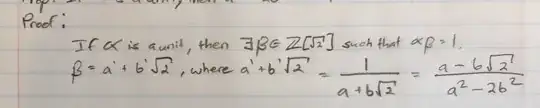 Proof:
If α is a unit, then ∃β∈ℤ[√2] such that αβ=1.
β = a' + b'√2, where a'+b'√2 = 1/(a+b√2) = (a-b√2)/(a²-2b²)